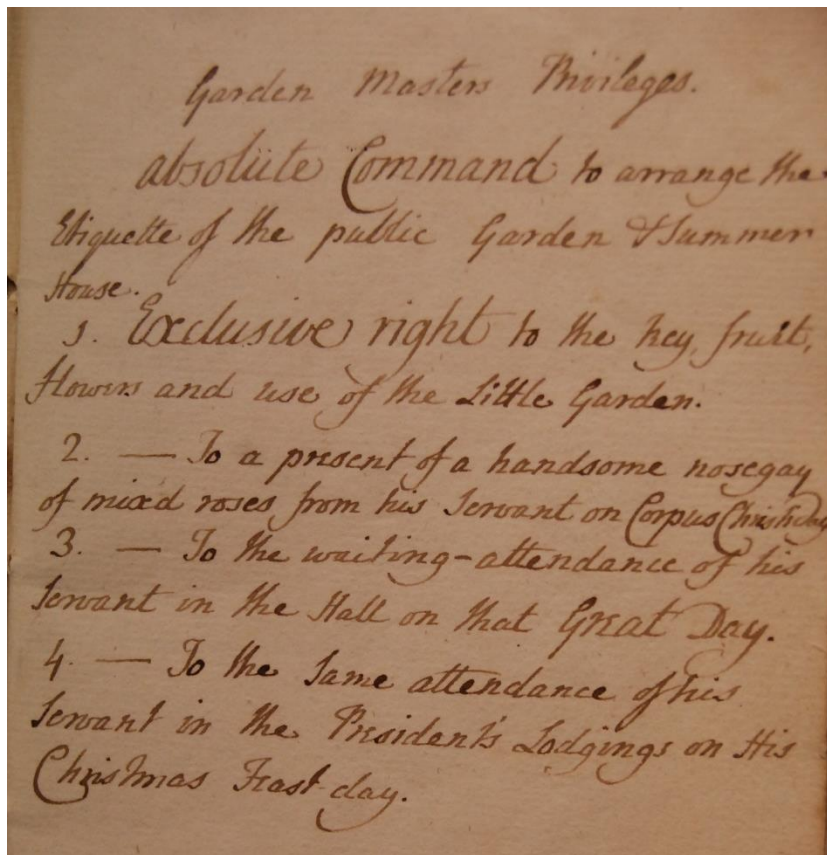 Garden Masters Privileges.
absolute Command to arrange the
Etiquette of the public Garden & Summer
House.
1. Exclusive right to the key, fruit,
flowers and use of the Little Garden.
2. — To a present of a handsome nosegay
of mixd roses from his Servant on Corpus Christi Day
3. — To the waiting-attendance of his
Servant in the Hall on that Great Day.
4. — To the same attendance of his
Servant in the President's Lodgings on His
Christmas Feast-day.